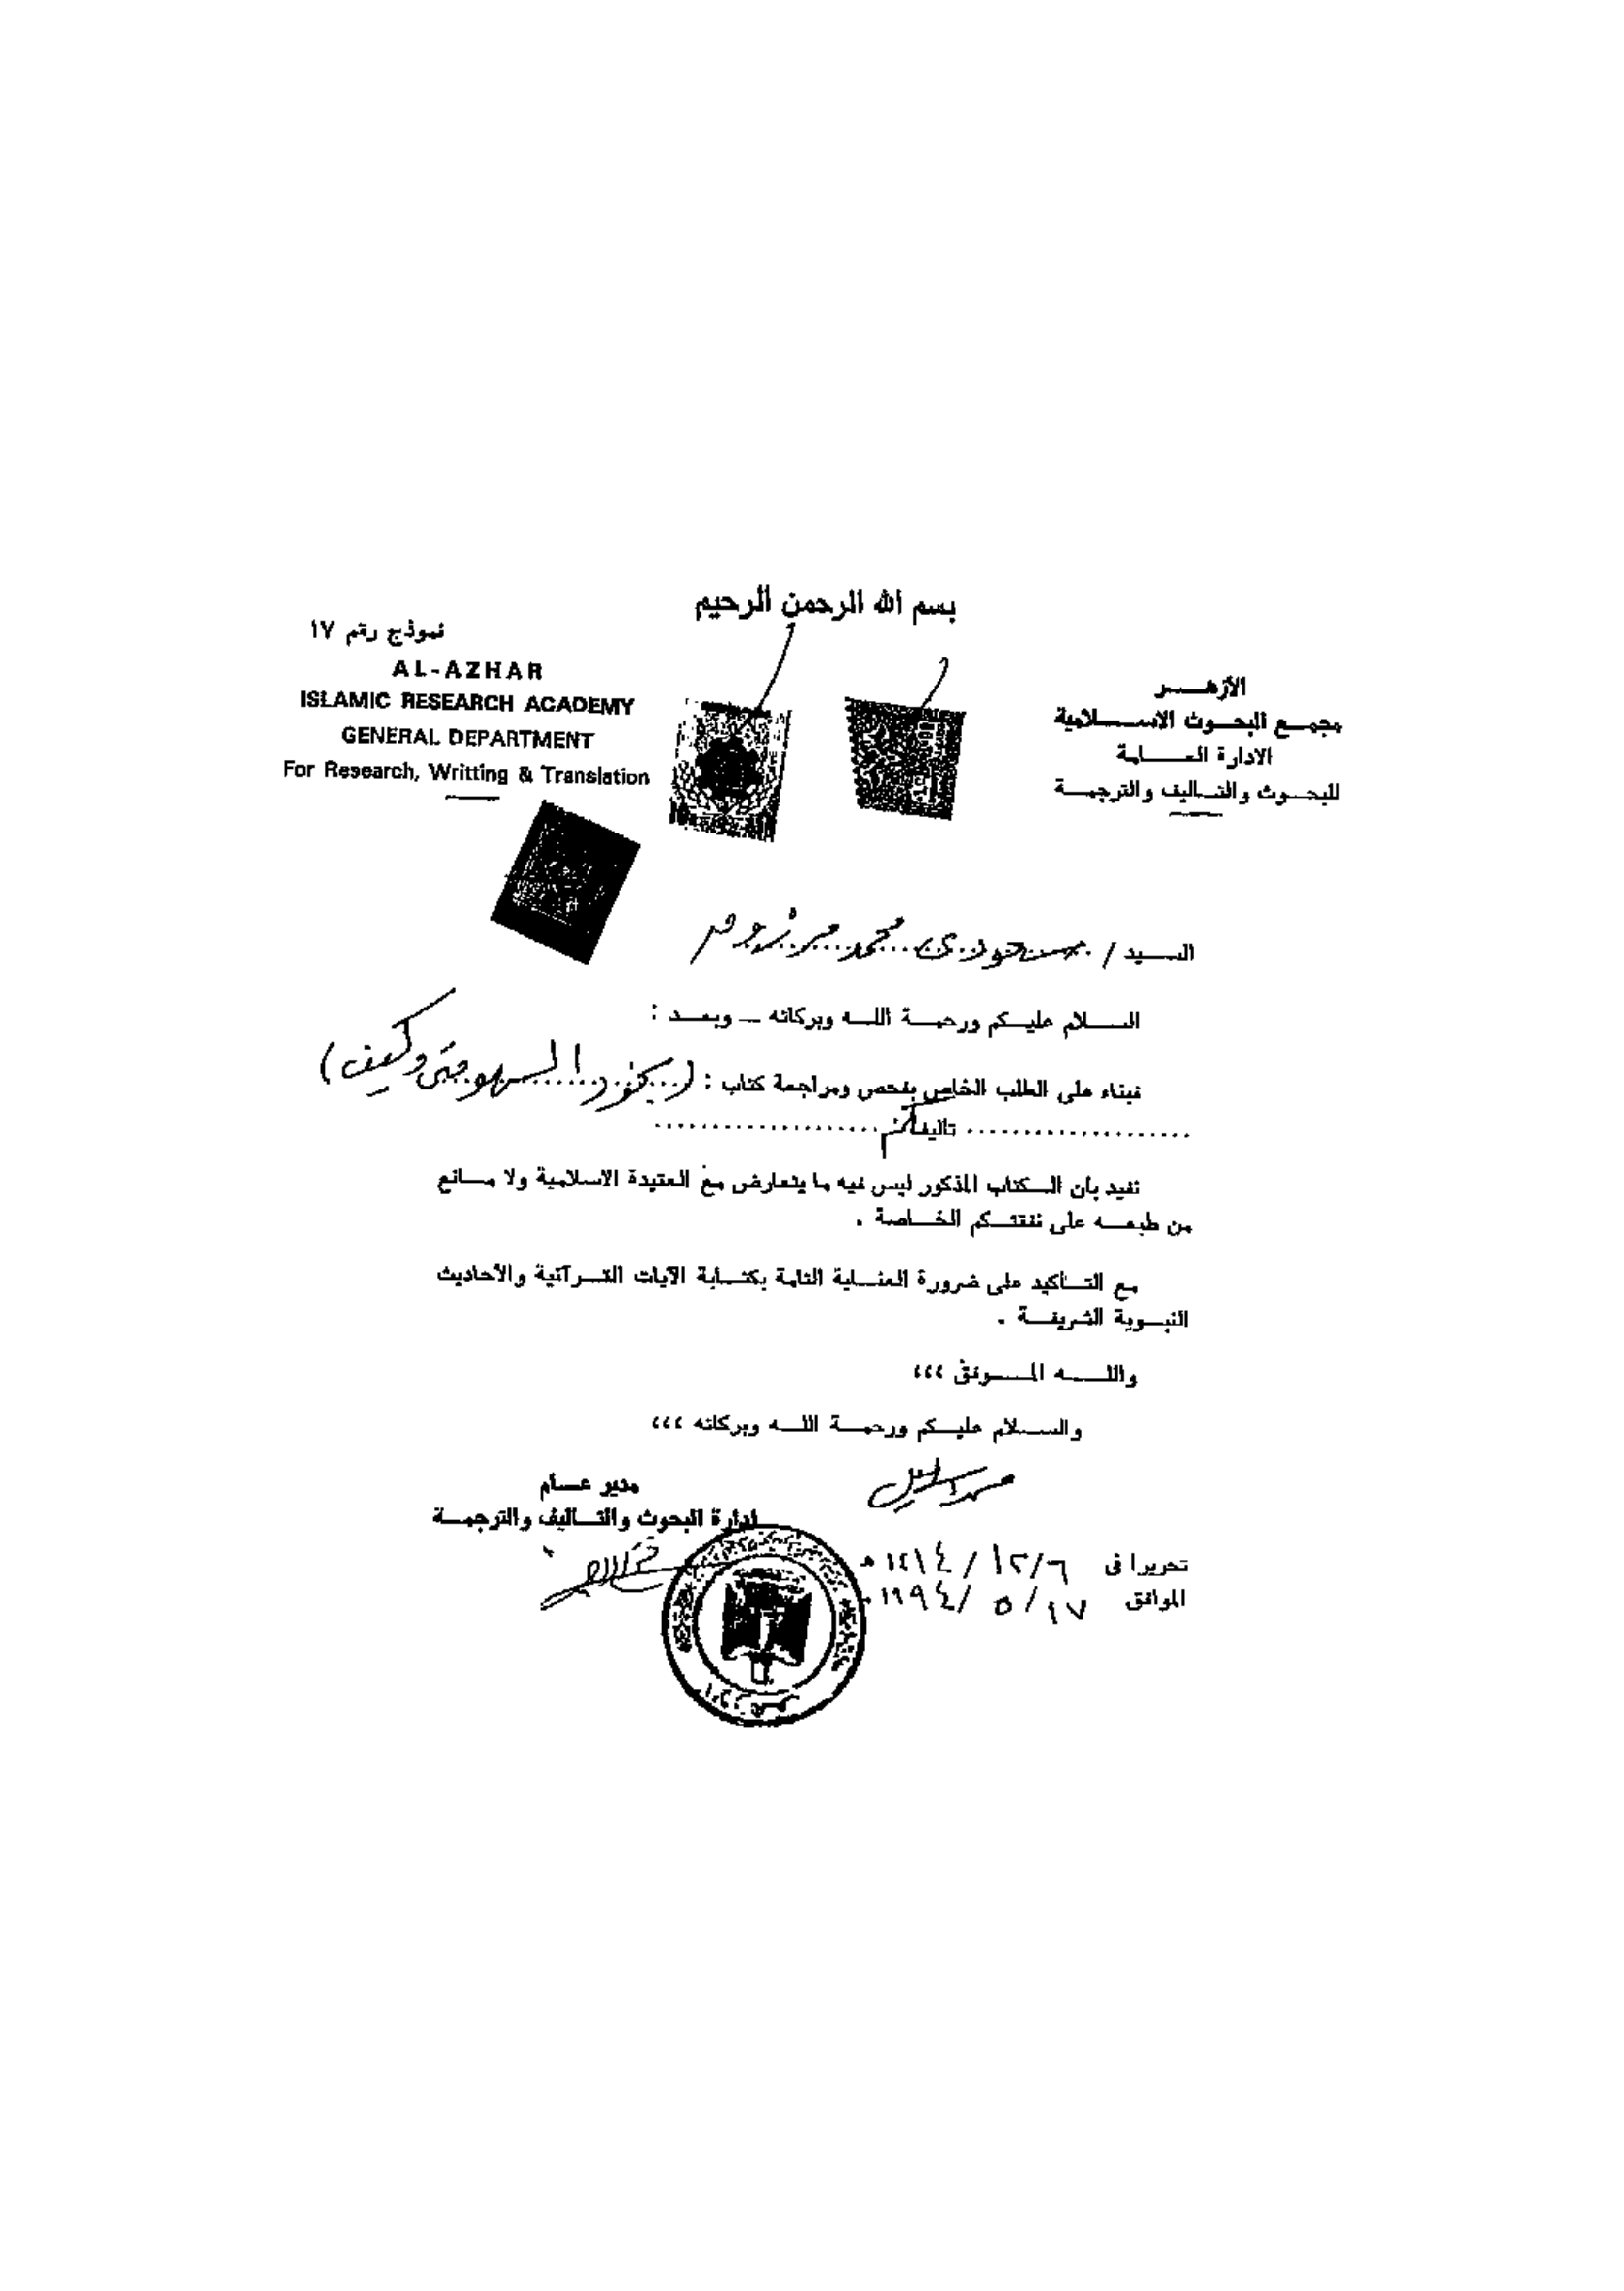 بسم الله الرحمن الرحيم
نموذج رقم ١٧
AL-AZHAR
ISLAMIC RESEARCH ACADEMY
GENERAL DEPARTMENT
For Research, Writting & Translation
الأزهـــر
مجمـع البحـوث الاســـلامية
الادارة العـــامة
للبحـوث والتـاليف والترجمـة
الســيد / سعودي محمد مرزوق
الســـلام عليـكم ورحمـــة اللـــه وبركاته ــ وبعـــد :
فبناء على الطلب الخاص بفحص ومراجعة كتاب : ( سجود السهو متى وكيف )
.................... تأليفكم ....................
نفيد بأن الـــكتاب المذكور ليس فيه ما يتعارض مع العقيدة الاسلامية ولا مـــانع
من طبعـــه على نفقتـــكم الخـــاصة .
مع التـــأكيد على ضرورة العنـــاية التامة بكتـــابة الآيات القـــرآنية والأحاديث
النبـــوية الشريفـــة .
واللـــــه المـــــوفق ،،،
والســـلام عليـــكم ورحمـــة اللـــه وبركاته ،،،
مدير عـــام
ادارة البحوث والتـــاليف والترجمـــة
تحريرا فى ٦ / ١٢ / ١٤١٤ هـ
الموافق ١٧ / ٥ / ١٩٩٤